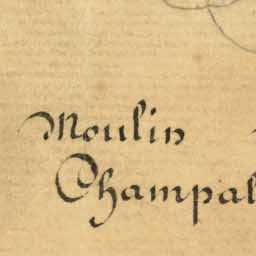 Moulin
Champal